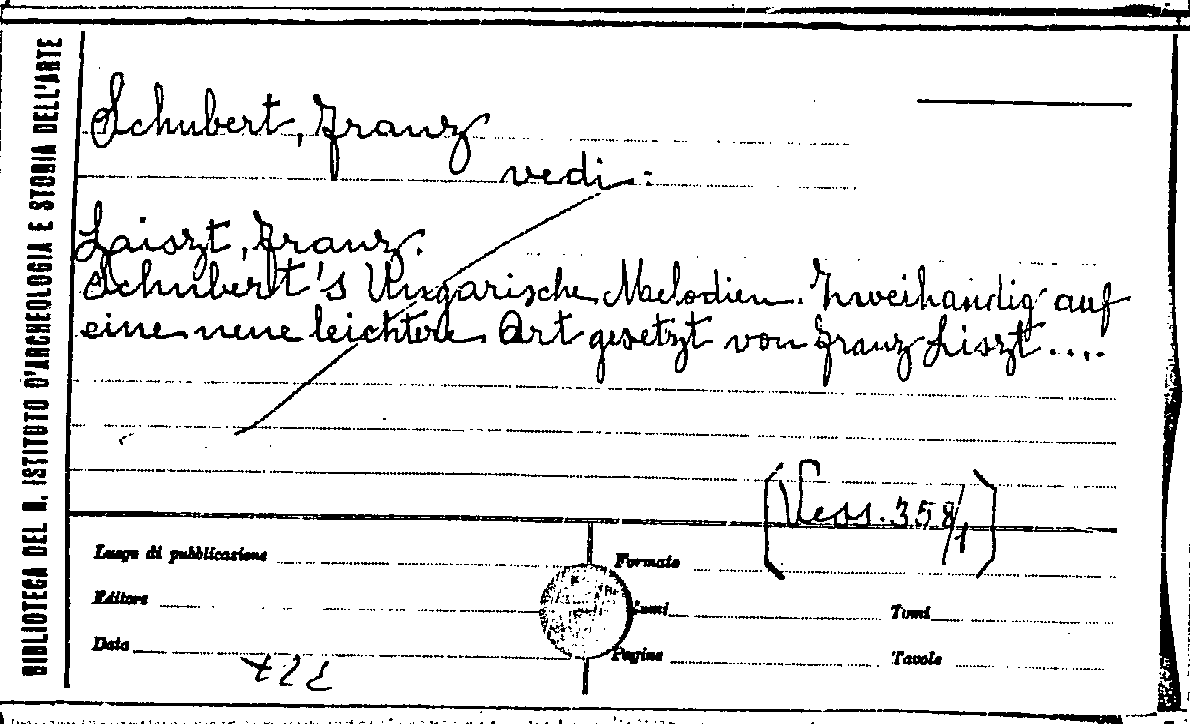 BIBLIOTECA DEL R. ISTITUTO D'ARCHEOLOGIA E STORIA DELL'ARTE
Schubert, Franz
vedi:
Laiszt, Franz.
Schubert's Ungarische Melodien. Zweihandig auf
eine neue leichtere Art gesetzt von Franz Liszt....
[Vess. 358/1]
Luogo di pubblicazione
Formato
Editore
Tomi
Data
Pagine
Tavole